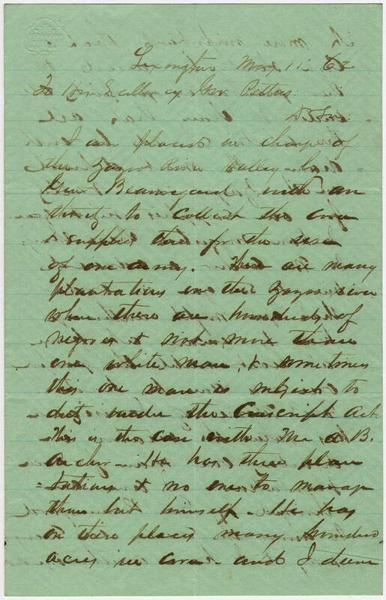 Lexington May 11. 62
To His Excellency Gov Pettus
D Sir
I am placed in charge of
the Yazoo River Valley by
Genl Beauregard with au
thority to Collect the corn
& supplies there for the use
of our army. There are many
plantations on the Yazoo river
where there are hundreds of
negroes & not more than
one white man, & sometimes
this one man is subject to
duty under the Conscript Act
This is the case with Mr A B.
He has three plan
tations & no one to manage
them but himself. He has
on these places many hundred
acres in corn - and I deem